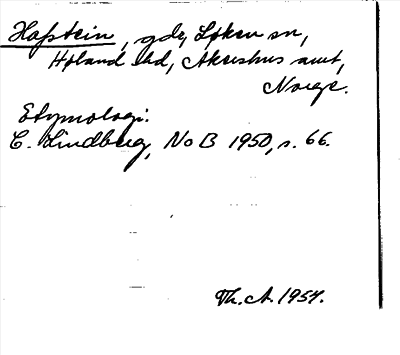 Hafstein, gde, Løken sn,
Høland hd, Akershus amt,
Norge.
Etymologi:
C. Lindberg, NoB 1950, s. 66.
Th. A. 1954.